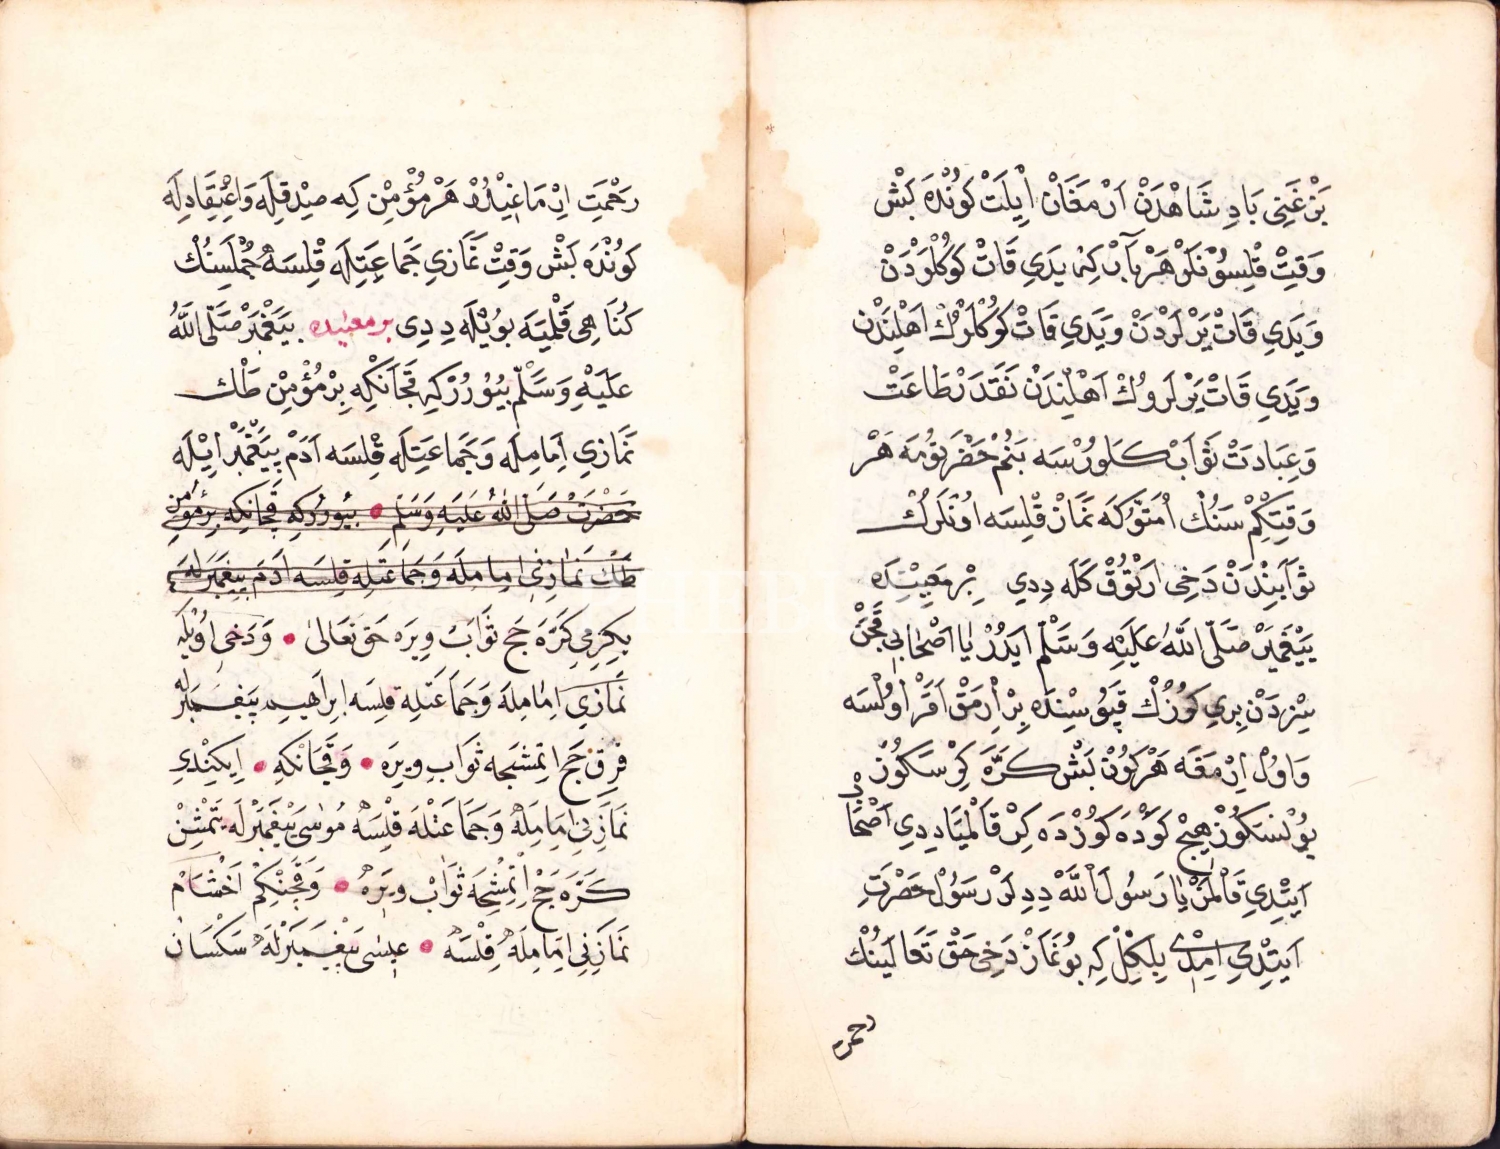 بَنْ غَنِی پَادِشَاهْدَنْ اَرْمَغَانْ اِیلَتْ كُونْدَه بَشْ
وَقِتْ قِلْسُونْلَرْ هَرْ بَابْ كِه یَدِی قَاتْ كُوكْلَرْدَنْ
وَیَدِی قَاتْ یَرْلَرْدَنْ وَیَدِی قَاتْ كُوكْلَرُكْ اَهْلِنْدَن
وَیَدِی قَاتْ یَرْلَرُوكْ اَهْلِنْدَنْ نَقَدَرْ طَاعَتْ
وَعِبَادَتْ ثَوَابْ كَلُورْسَه بَنُمْ حَضْرَتُومَه هَرْ
وَقِتْكِمْ سَنُكْ اُمَّتُوكْ نَمَازْ قِلْسَه اُونْلَرُكْ
ثَوَابِنْدَنْ دَخِی اَرْتُوقْ كَلَه دِدِی بِرْ مَعْنِیْدَه
پَیْغَمْبَرْ صَلَّی اللّٰهُ عَلَیْهِ وَسَلَّمْ اَیْدُرْ یَا اَصْحَابِی قَچَنْ
سِزْدَنْ بِرِی كُوزُكْ قَپُوسِنْدَه بِرْ اِرْمَقْ اَقَرْ اُولْسَه
وَاُولْ اِرْمَقَه هَرْكُونْ بَشْ كَرَّه كِرْسَكُوزْ
یُونْسَكُوزْ هِیچْ كَوْدَه كُوزْدَه كِرْ قَالْمِیَا دِدِی اَصْحَابْ
اَیتْدِی قَالْمَزْ یَا رَسُولَ اللّٰهْ دِدِلَرْ رَسُولْ حَضْرَتِ
اَیتْدِی اِمْدِی بِلْكِلْ كِه بُو نَمَازْ دَخِی حَقْ تَعَالَینُكْ
رحمت
رَحْمَتِ اِرْمَاغِیْدُرْ هَرْ مُؤْمِنْ كِه صِیدْقِلَه وَاِعْتِقَادِلَه
كُونْدَه بَشْ وَقِتْ نَمَازِی جَمَاعَتِلَه قِلْسَه جُمْلَسِنُكْ
كُنَاهِی قَلْمِیَه بُویْلَه دِدِی بر معنیده پَیْغَمْبَرْ صَلَّی اللّٰهُ
عَلَیْهِ وَسَلَّمْ بُیُورُرْ كِه قَچَانْكِه بِرْ مُؤْمِنْ طَاكْ
نَمَازِی اِمَامِلَه وَجَمَاعَتِلَه قِلْسَه اَدَمْ پَیْغَمْبَرْ اِیْلَه
حَضْرَتْ صَلَّی اللّٰهُ عَلَیْهِ وَسَلَّمْ • بُیُورُرْكِه قَچَانْكِه بِرْ مُؤْمِنْ
طَاكْ نَمَازِنِی اِمَامِلَه وَجَمَاعَتِلَه قِلِسَه اَدَم پیغَمْبَرلَه
یِكِرْمِی كَرَّه حَجْ ثَوَابْ وِیرَه حَق تَعَالیٰ • وَدَخِی اُویْلَه
نَمَازِی اِمَامِلَه وَجَمَاعَتلِه قِلِسَه اِبرَاهِیم پَیْغَمْبَرْلَه
قِرِقْ حَجْ اِتمشجه ثَوَابِ وِیرَه • وَقَچَانْكِه • اِیكِنْدِی
نَمَازِنِی اِمَامِلَهْ وَجَمَاعَتْلَهْ قِلْسَهْ مُوسٰی پَیْغَمْبَرْلَه یَتْمِشْ
كَرَّه حَجْ اِتْمِشْجَه ثَوَابْ وِیرَهْ • وَقَچَنْكِمْ اَخْشَامْ
نَمَازِنِی اِمَامِلَهْ قِلْسَهْ • عِیسٰی پَیْغَمْبَرْلَهْ سَكْسَان